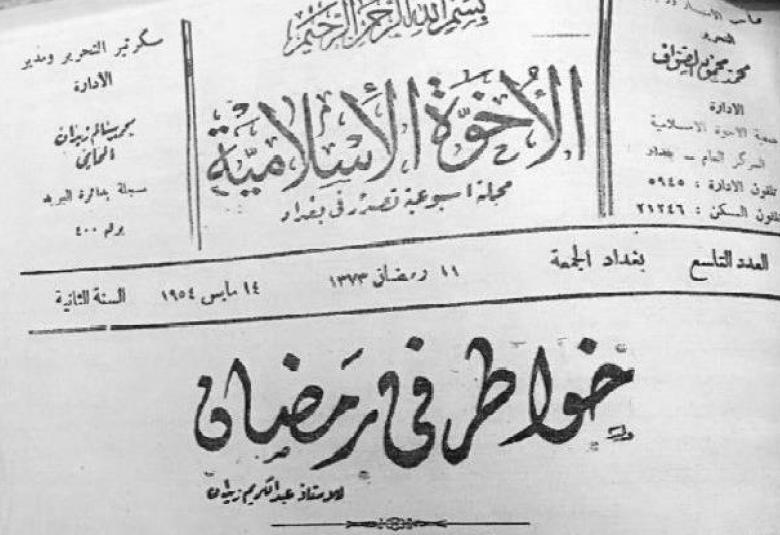 بسم الله الرحمن الرحيم
الأخوة الإسلامية
مجلة اسبوعية تصدر في بغداد
صاحب
التحرير
محمد محمود الصواف
الادارة
جمعية الاخوة الاسلامية
المركز العام - بغداد
تلفون الادارة : ٥٩٤٥
تلفون السكن : ٢١٢٤٦
سكرتير التحرير ومدير
الادارة
محمد سالم زيدان
المحامي
مسجلة بدائرة البريد
برقم ٤٠٠
العدد التاسع بغداد الجمعة ١١ رمضان ١٣٧٣ ١٤ مايس ١٩٥٤ السنة الثانية
خواطر في رمضان
للاستاذ عبدالكريم زيدان